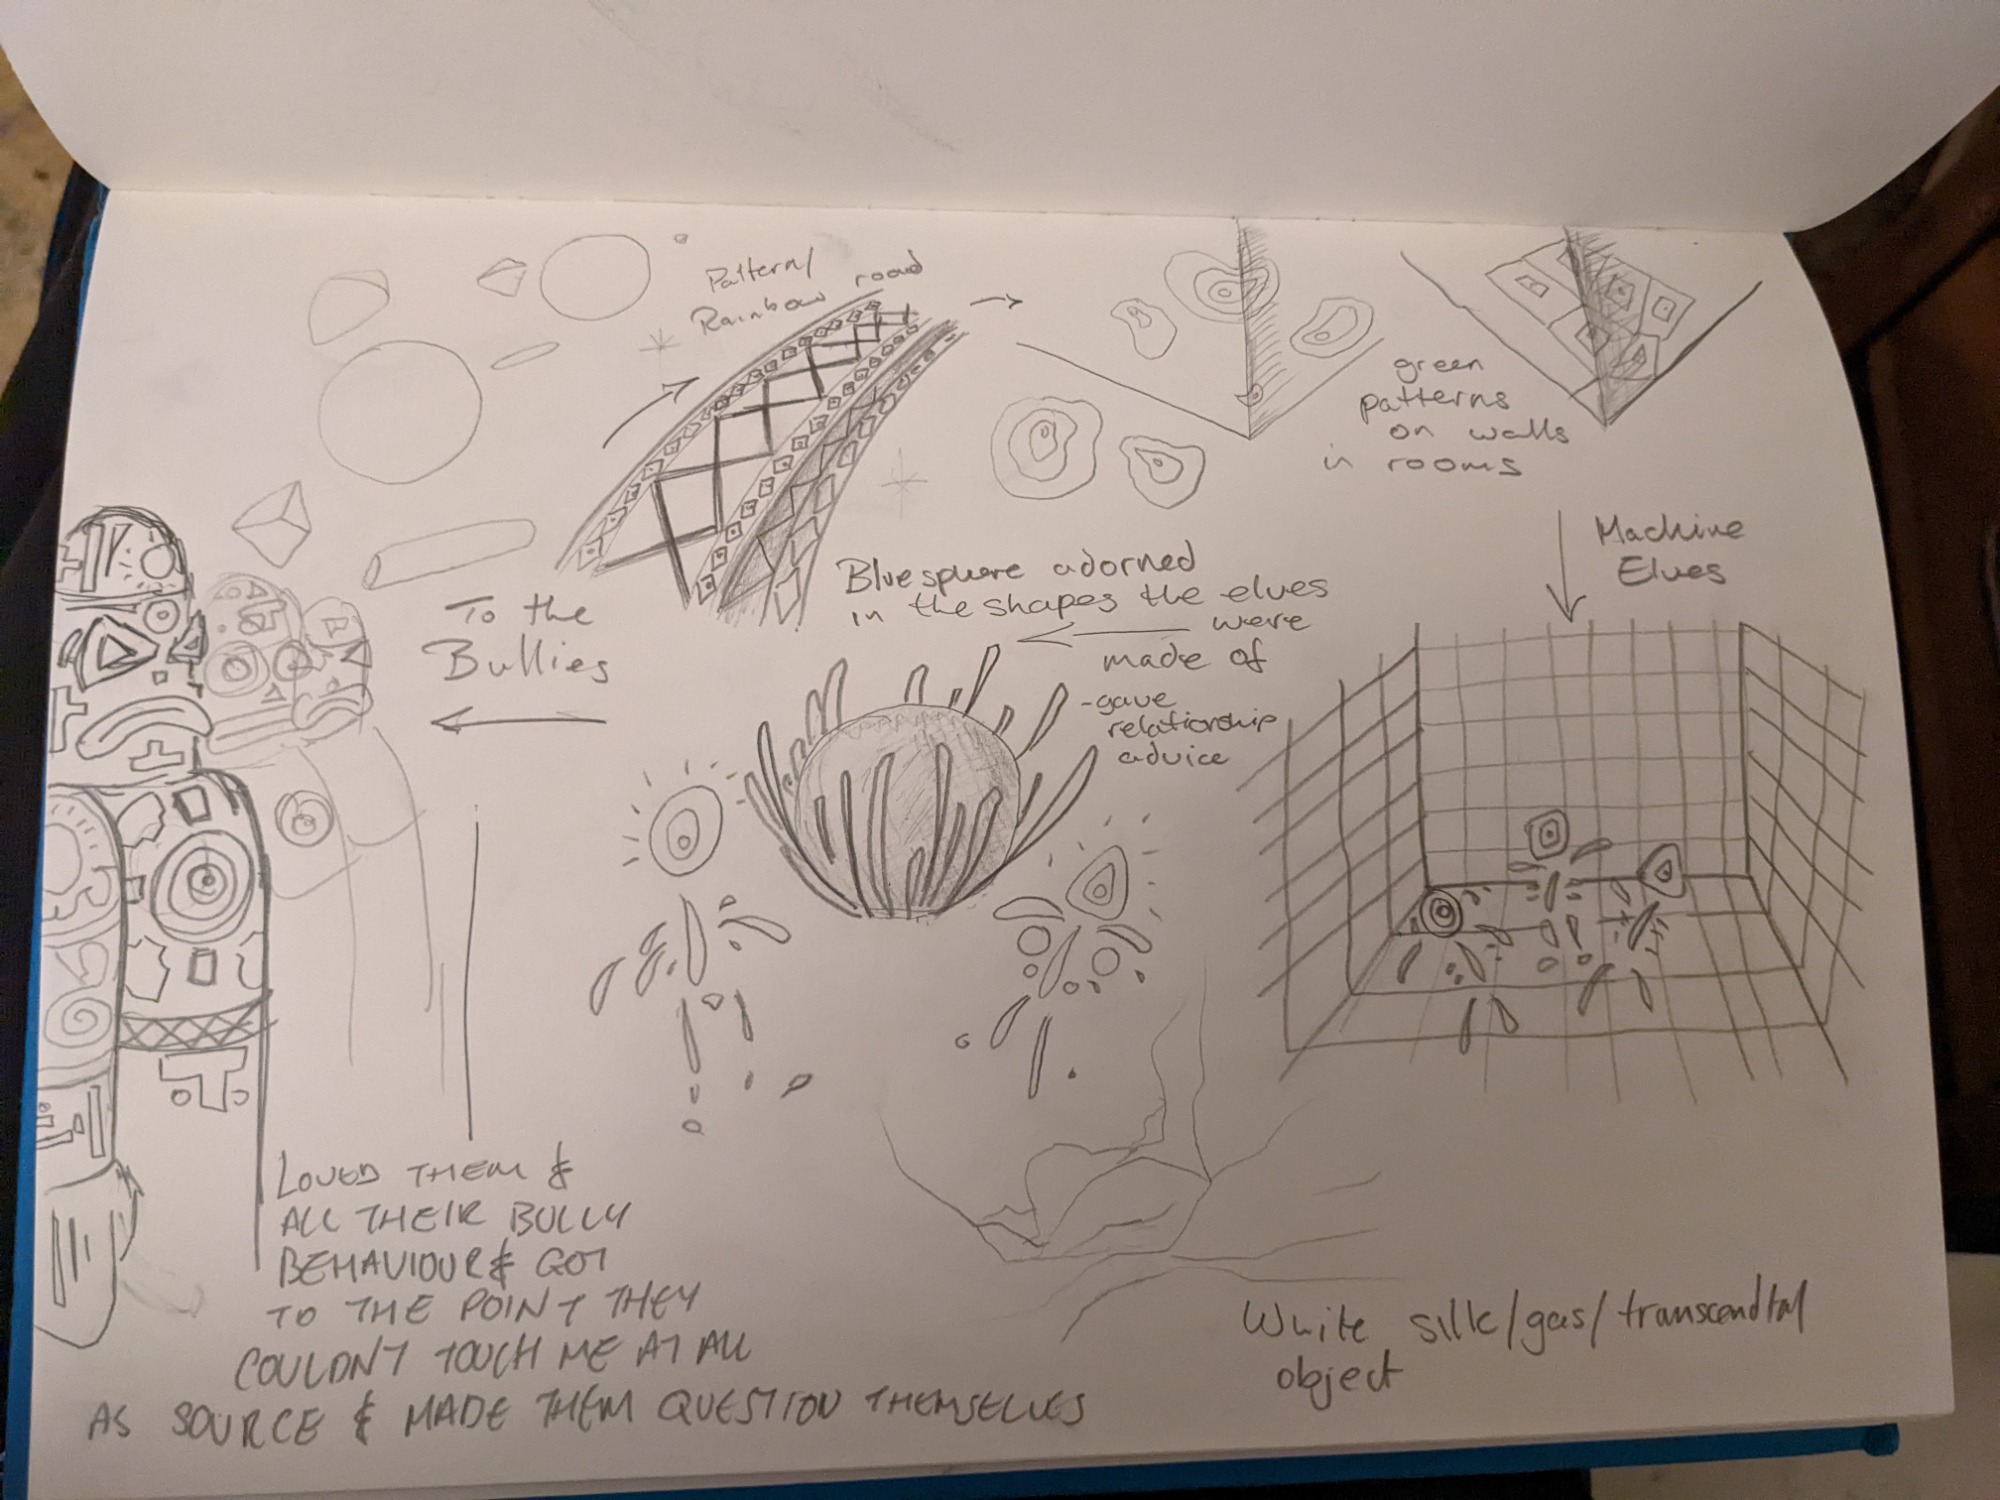 Pattern/
Rainbow road
green
patterns
on walls
in rooms
Machine
Elves
Blue sphere adorned
in the shapes the elves
were
made of
-gave
relationship
advice
To the
Bullies
LOVED THEM &
ALL THEIR BULLY
BEHAVIOUR & GOT
TO THE POINT THEY
COULDN'T TOUCH ME AT ALL
AS SOURCE & MADE THEM QUESTION THEMSELVES
White silk/gas/transcendtal
object